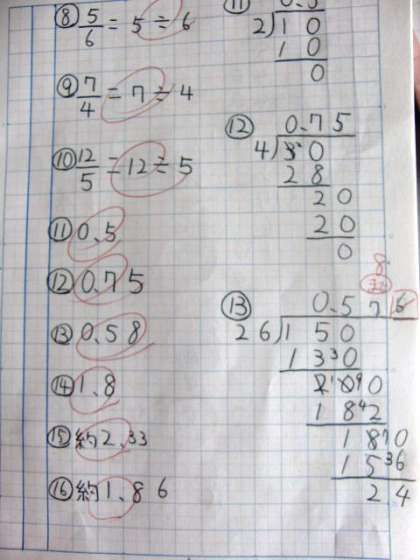 ⑧ 5/6 = 5 ÷ 6
⑨ 7/4 = 7 ÷ 4
⑩ 12/5 = 12 ÷ 5
⑪ 0.5
⑫ 0.75
⑬ 0.58
⑭ 1.8
⑮ 約2.33
⑯ 約1.86
⑪
2)1 0
1 0
0
⑫ 0.75
4)3 0
2 8
2 0
2 0
0
8
⑬ 0.5 7 6
2 6)1 5 0
1 3 0
0
1 8 2
1 8 0
1 5 6
2 4